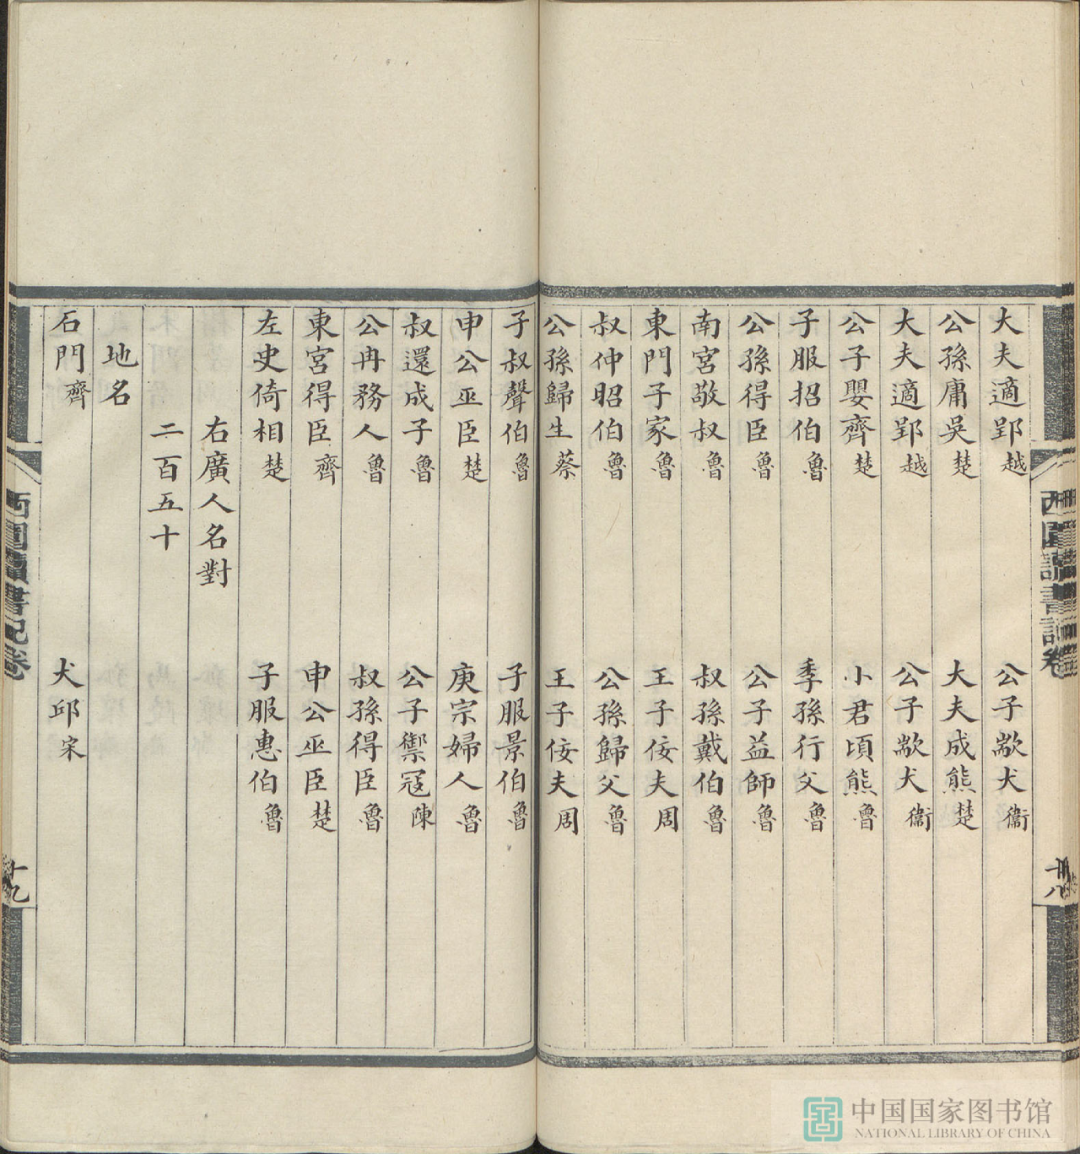 大夫適郢越 公子歂犬衞
公孫庸吳楚 大夫成熊楚
大夫適郢越 公子歂犬衞
公子嬰齊楚 小君頃熊魯
子服招伯魯 季孫行父魯
公孫得臣魯 公子益師魯
南宮敬叔魯 叔孫戴伯魯
東門子家魯 王子佞夫周
叔仲昭伯魯 公孫歸父魯
公孫歸生蔡 王子佞夫周
子叔聲伯魯 子服景伯魯
申公巫臣楚 庚宗婦人魯
叔還成子魯 公子禦冦陳
公冉務人魯 叔孫得臣魯
東宮得臣齊 申公巫臣楚
左史倚相楚 子服惠伯魯
右廣人名對
二百五十
地名
石門齊 犬邱宋
西園讀書記卷
十八
西園讀書記卷
十九
中国国家图书馆
NATIONAL LIBRARY OF CHINA